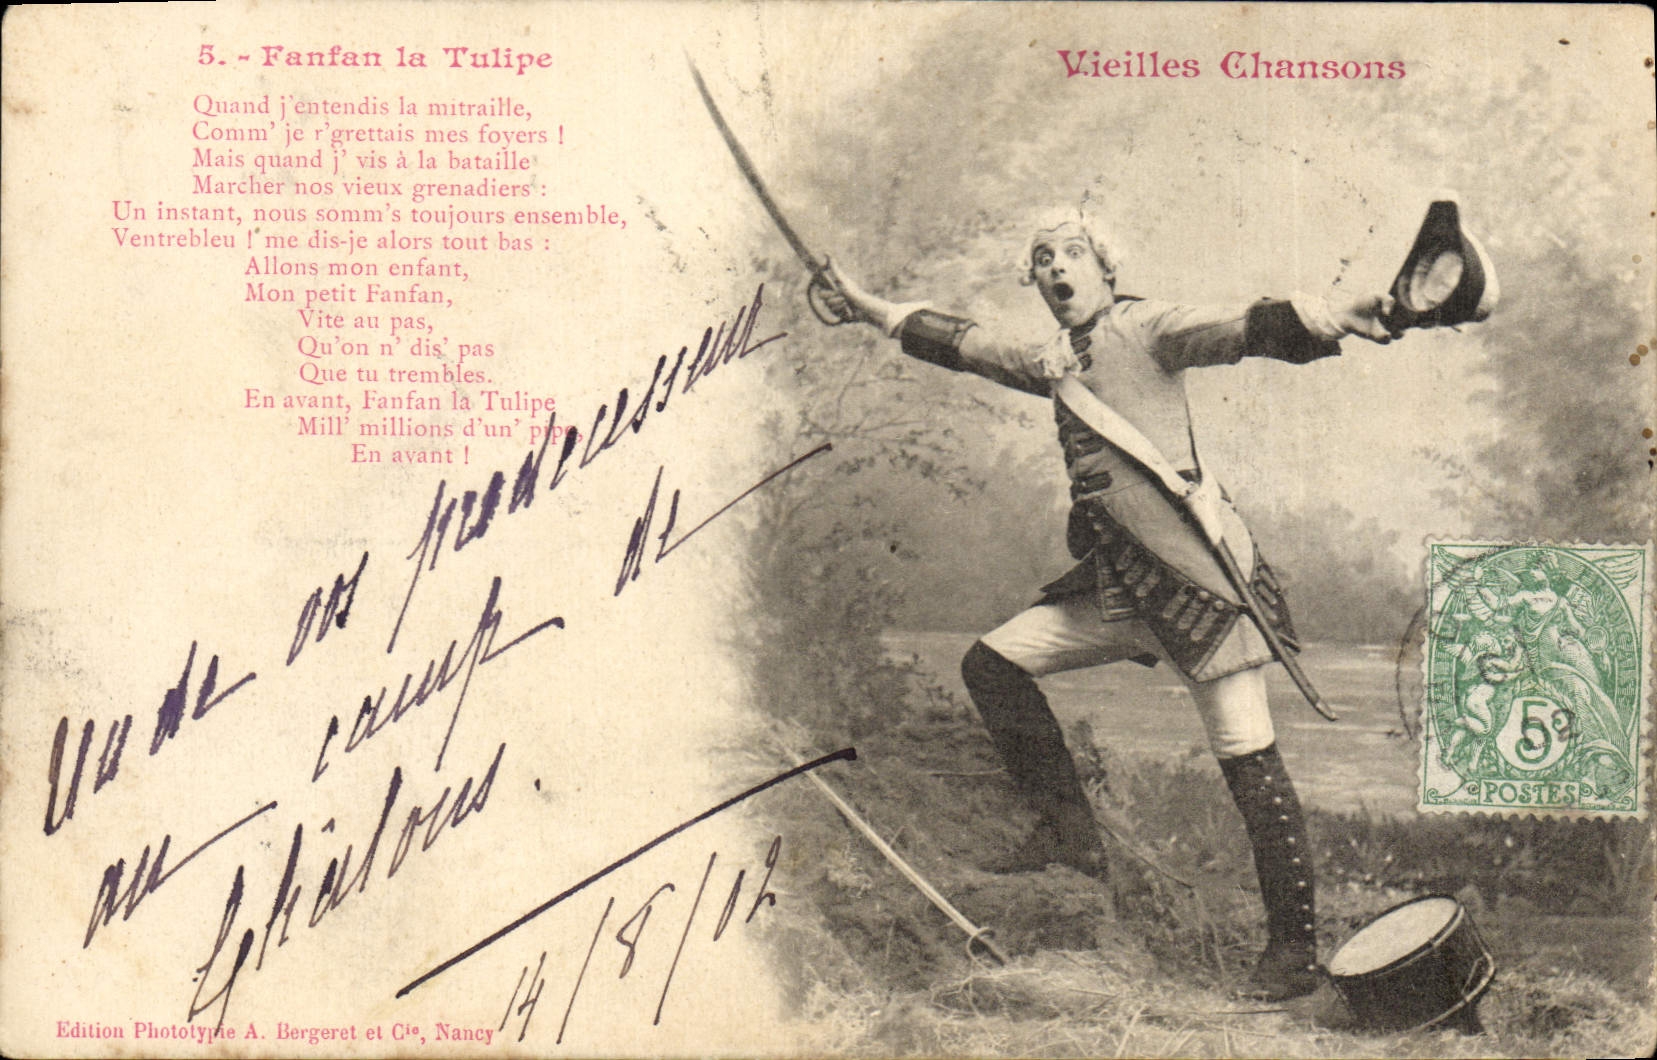 5. - Fanfan la Tulipe
Quand j'entendis la mitraille,
Comm' je r'grettais mes foyers !
Mais quand j' vis à la bataille
Marcher nos vieux grenadiers :
Un instant, nous somm's toujours ensemble,
Ventrebleu ! me dis-je alors tout bas :
Allons mon enfant,
Mon petit Fanfan,
Vite au pas,
Qu'on n' dis' pas
Que tu trembles.
En avant, Fanfan la Tulipe
Mill' millions d'un' pipe,
En avant !
Vieilles Chansons
Un de vos predecesseur
au camp de
Châlons.
14/8/02
5
POSTES
Edition Phototypie A. Bergeret et Cie, Nancy